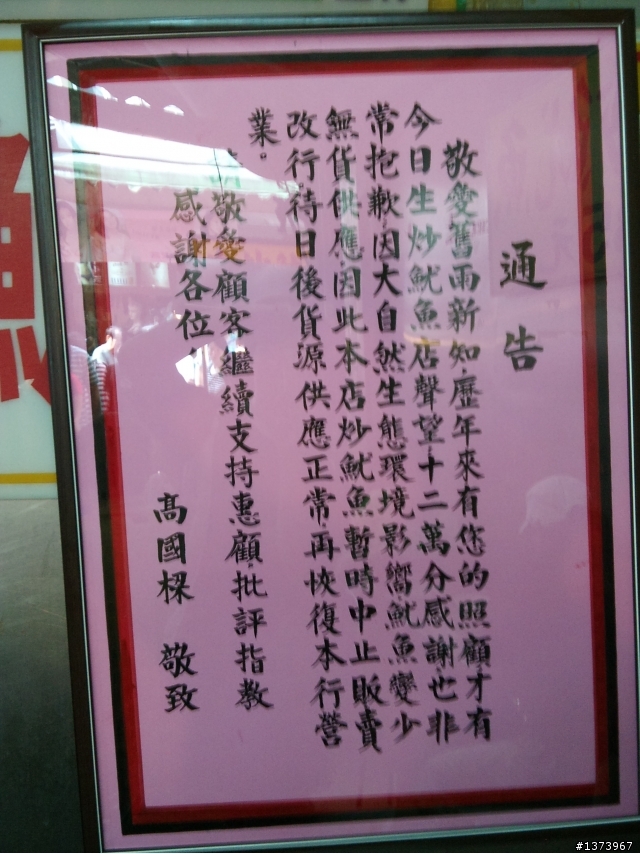 通告
敬愛舊雨新知歷年來有您的照顧才有
今日生炒魷魚店聲望十二萬分感謝也非
常抱歉因大自然生態環境影嚮魷魚變少
無貨供應因此本店炒魷魚暫時中止販賣
改行待日後貨源供應正常再恢復本行營
業。
敬愛顧客繼續支持惠顧批評指教
感謝各位
高國樑 敬致
#1373967